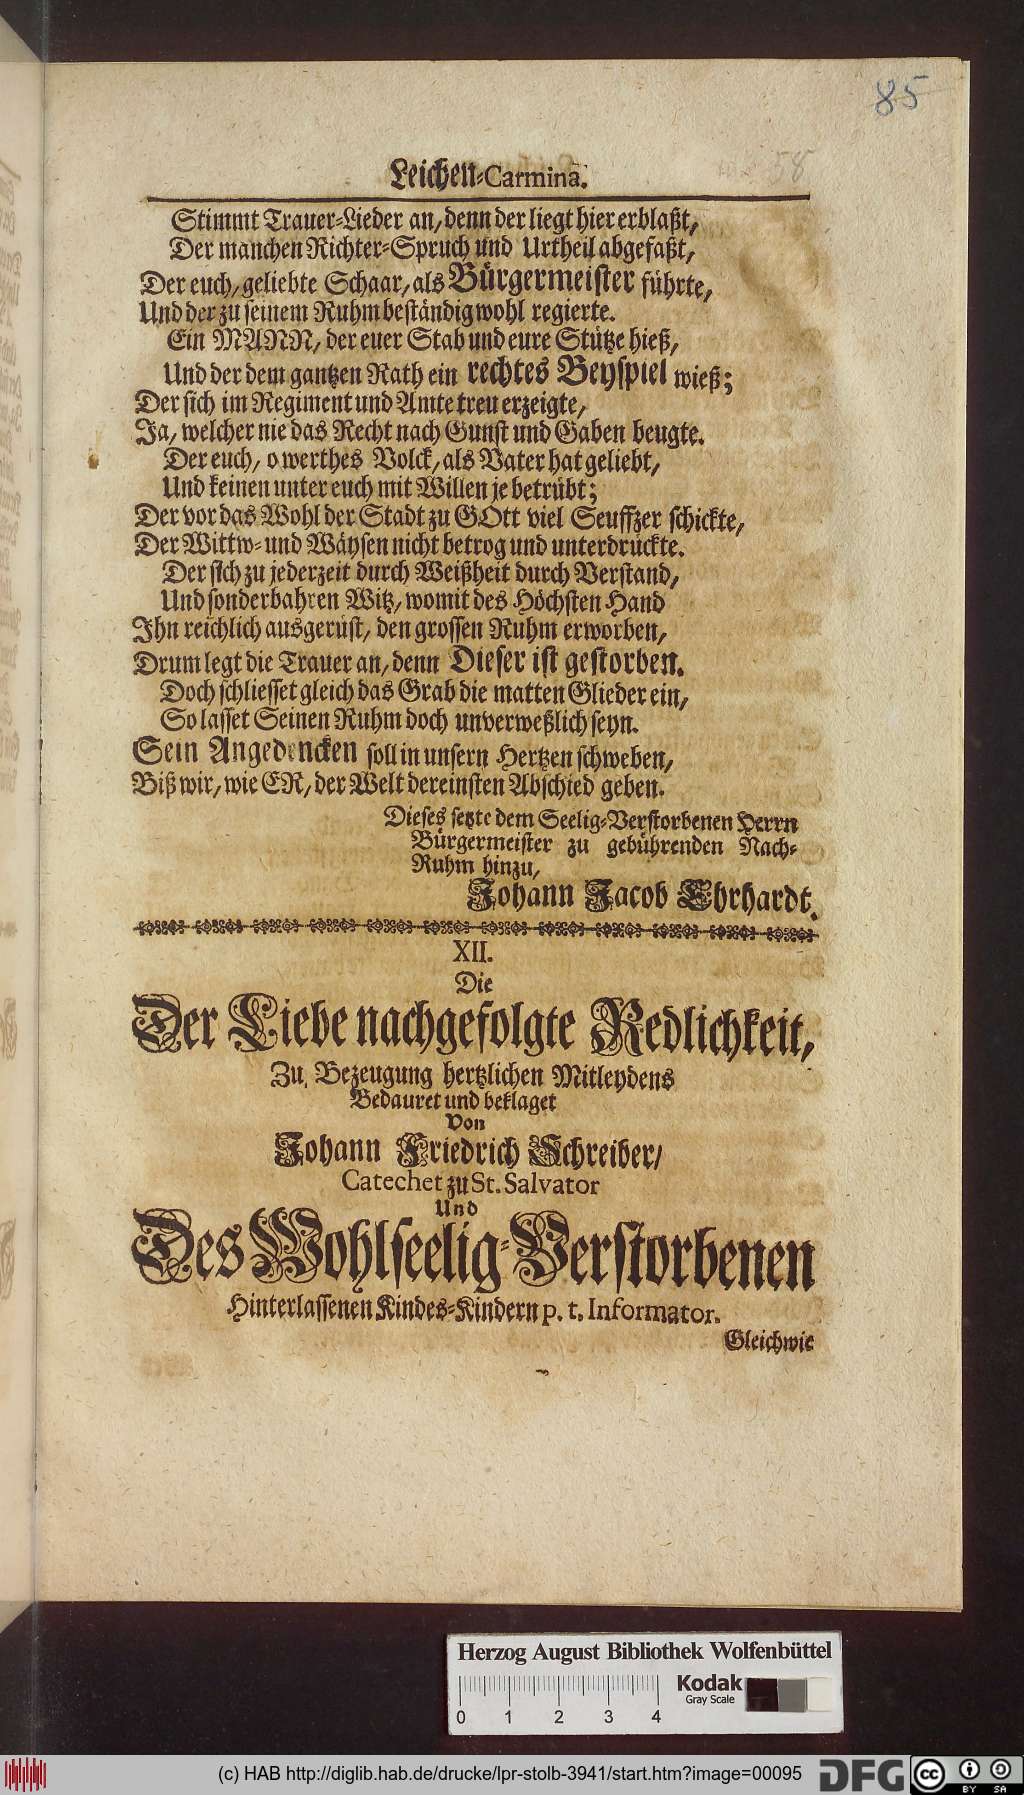 85
58
Leichen-Carmina.
Stimmt Trauer-Lieder an, denn der liegt hier erblaßt,
Der manchen Richter-Spruch und Urtheil abgefaßt,
Der euch, geliebte Schaar, als Bürgermeister führte,
Und der zu seinem Ruhm beständig wohl regierte.
Ein MANN, der euer Stab und eure Stütze hieß,
Und der dem gantzen Rath ein rechtes Beyspiel wieß;
Der sich im Regiment und Amte treu erzeigte,
Ja, welcher nie das Recht nach Gunst und Gaben beugte.
Der euch, o werthes Volck, als Vater hat geliebt,
Und keinen unter euch mit Willen je betrübt;
Der vor das Wohl der Stadt zu GOtt viel Seuffzer schickte,
Der Wittw- und Wäysen nicht betrog und unterdrückte.
Der sich zu jederzeit durch Weißheit durch Verstand,
Und sonderbahren Witz, womit des Höchsten Hand
Ihn reichlich ausgerüst, den grossen Ruhm erworben,
Drum legt die Trauer an, denn Dieser ist gestorben.
Doch schliesset gleich das Grab die matten Glieder ein,
So lasset Seinen Ruhm doch unverweßlich seyn.
Sein Angedencken soll in unsern Hertzen schweben,
Biß wir, wie ER, der Welt dereinsten Abschied geben.
Dieses setzte dem Seelig-Verstorbenen Herrn
Bürgermeister zu gebührenden Nach-
Ruhm hinzu,
Johann Jacob Ehrhardt.
XII.
Die
Der Liebe nachgefolgte Redlichkeit,
Zu Bezeugung hertzlichen Mitleydens
Bedauret und beklaget
Von
Johann Friedrich Schreiber/
Catechet zu St. Salvator
Und
Des Wohlseelig-Verstorbenen
Hinterlassenen Kindes-Kindern p. t. Informator.
Gleichwie
Herzog August Bibliothek Wolfenbüttel
Kodak
Gray Scale
0 1 2 3 4
(c) HAB http://diglib.hab.de/drucke/lpr-stolb-3941/start.htm?image=00095
DFG
cc BY SA